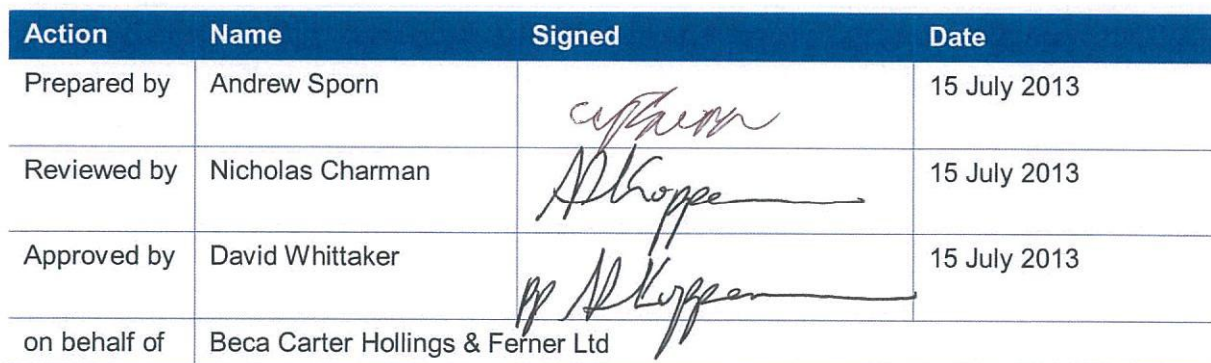 Action Name Signed Date
Prepared by Andrew Sporn 15 July 2013
Reviewed by Nicholas Charman 15 July 2013
Approved by David Whittaker pp 15 July 2013
on behalf of Beca Carter Hollings & Ferner Ltd